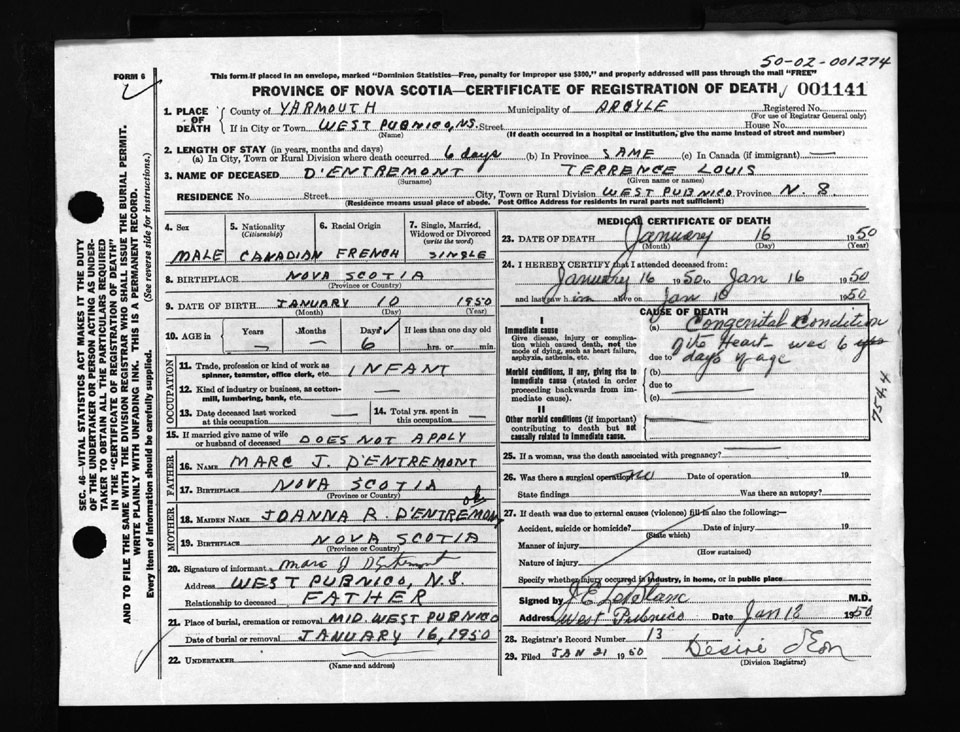 50-02-001274
FORM 6
This form if placed in an envelope, marked "Dominion Statistics—Free, penalty for improper use $300," and properly addressed will pass through the mail "FREE"
PROVINCE OF NOVA SCOTIA—CERTIFICATE OF REGISTRATION OF DEATH 001141
SEC. 46—VITAL STATISTICS ACT MAKES IT THE DUTY
OF THE UNDERTAKER OR PERSON ACTING AS UNDER-
TAKER TO OBTAIN ALL THE PARTICULARS REQUIRED
IN THE "CERTIFICATE OF REGISTRATION OF DEATH"
AND TO FILE THE SAME WITH THE DIVISION REGISTRAR WHO SHALL ISSUE THE BURIAL PERMIT.
WRITE PLAINLY WITH UNFADING INK. THIS IS A PERMANENT RECORD.
Every item of information should be carefully supplied. (See reverse side for instructions.)
1. PLACE OF DEATH
County of YARMOUTH Municipality of ARGYLE Registered No.
(For use of Registrar General only)
If in City or Town WEST PUBNICO, N.S. Street House No.
(Name) (If death occurred in a hospital or institution, give the name instead of street and number)
2. LENGTH OF STAY (in years, months and days)
(a) In City, Town or Rural Division where death occurred 6 days (b) In Province SAME (c) In Canada (if immigrant) —
3. NAME OF DECEASED D'ENTREMONT TERRENCE LOUIS
(Surname) (Given name or names)
RESIDENCE No. Street City, Town or Rural Division WEST PUBNICO Province N. S.
(Residence means usual place of abode. Post Office Address for residents in rural parts not sufficient)
4. Sex 5. Nationality 6. Racial Origin 7. Single, Married,
(Citizenship) Widowed or Divorced
(write the word)
MALE CANADIAN FRENCH SINGLE
8. BIRTHPLACE NOVA SCOTIA
(Province or Country)
9. DATE OF BIRTH JANUARY 10 1950
(Month) (Day) (Year)
10. AGE in Years Months Days If less than one day old
— — 6 hrs. or min.
OCCUPATION
11. Trade, profession or kind of work as INFANT
spinner, teamster, office clerk, etc.
12. Kind of industry or business, as cotton- —
mill, lumbering, bank, etc.
13. Date deceased last worked — 14. Total yrs. spent in —
at this occupation this occupation
15. If married give name of wife DOES NOT APPLY
or husband of deceased
FATHER
16. NAME MARC J. D'ENTREMONT
17. BIRTHPLACE NOVA SCOTIA
(Province or Country)
MOTHER
ok
18. MAIDEN NAME JOANNA R. D'ENTREMONT
19. BIRTHPLACE NOVA SCOTIA
(Province or Country)
20. Signature of informant Marc J D'Entremont
Address WEST PUBNICO, N.S.
Relationship to deceased FATHER
21. Place of burial, cremation or removal MID. WEST PUBNICO
Date of burial or removal JANUARY 16, 1950
22. UNDERTAKER
(Name and address)
MEDICAL CERTIFICATE OF DEATH
23. DATE OF DEATH January 16 1950
(Month) (Day) (Year)
24. I HEREBY CERTIFY that I attended deceased from:
January 16 1950 to Jan 16 1950
and last saw him alive on Jan 10 1950
CAUSE OF DEATH
I
Immediate cause (a) Congenital Condition
Give disease, injury or complica-
tion which caused death, not the
mode of dying, such as heart failure,
asphyxia, asthenia, etc.
of the Heart - was 6
due to days of age
Morbid conditions, if any, giving rise to (b)
immediate cause (stated in order due to
proceeding backwards from im-
mediate cause). (c)
754.4
II
Other morbid conditions (if important)
contributing to death but not
causally related to immediate cause.
25. If a woman, was the death associated with pregnancy? —
26. Was there a surgical operation? no Date of operation 19
State findings Was there an autopsy?
27. If death was due to external causes (violence) fill in also the following:—
Accident, suicide or homicide? Date of injury 19
(State which)
Manner of injury
(How sustained)
Nature of injury
Specify whether injury occurred in industry, in home, or in public place
Signed by J E LeBlanc M.D.
Address West Pubnico Date Jan 18 1950
28. Registrar's Record Number 13
29. Filed JAN 21 1950 Désiré d'Eon
(Division Registrar)